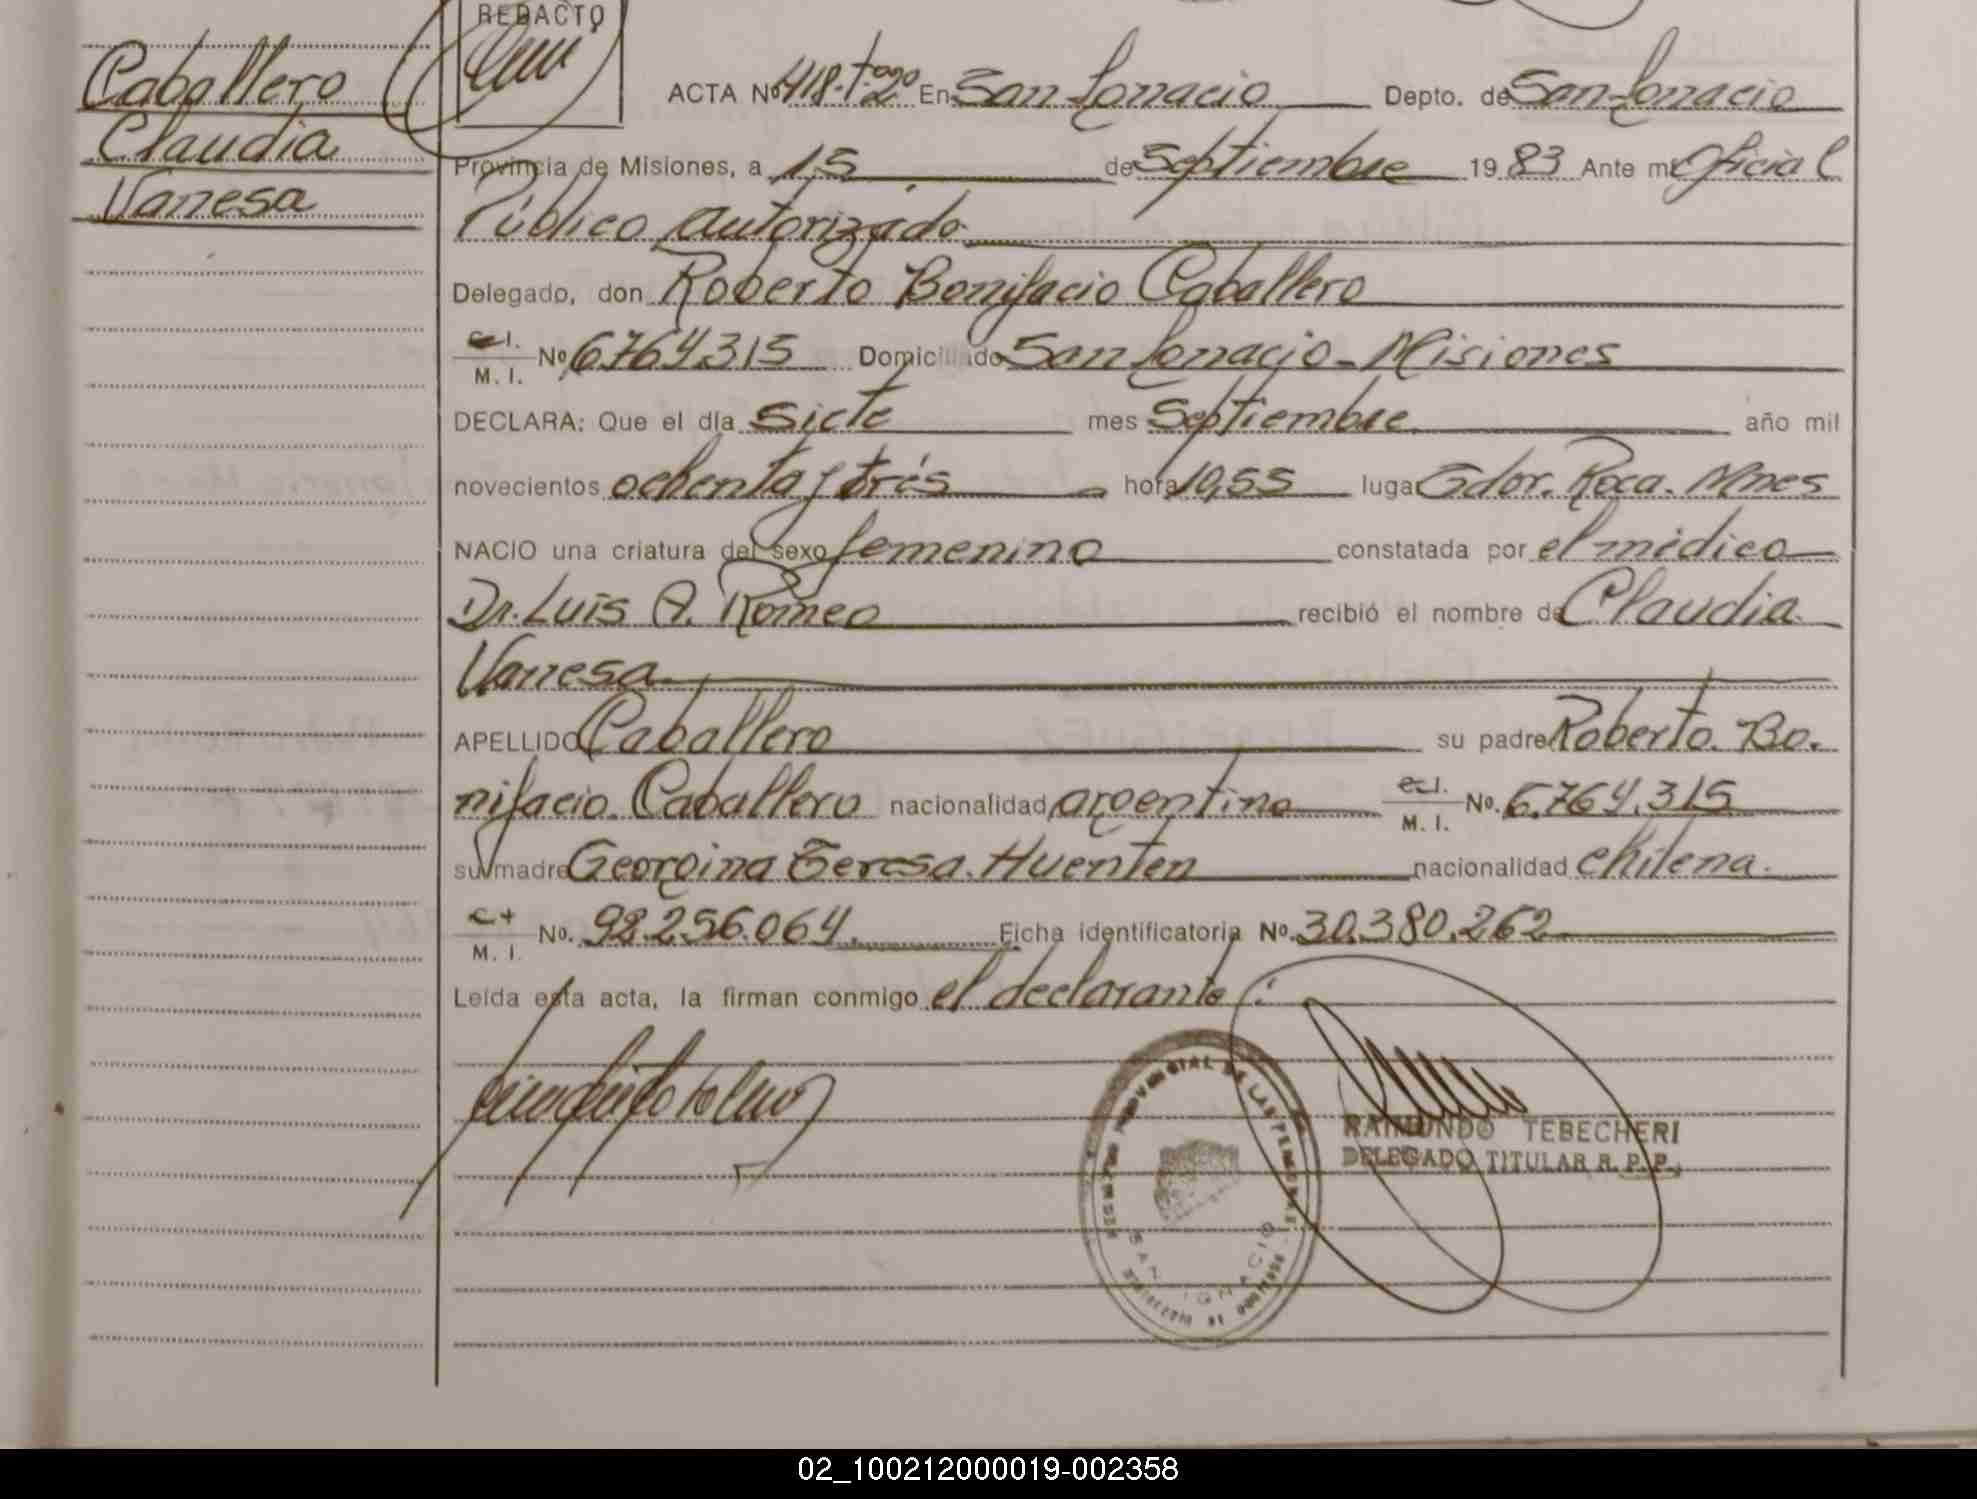 REDACTO
Caballero
Claudia
Vanesa
ACTA Nº 418.tº2º En San Ignacio Depto. de San Ignacio
Provincia de Misiones, a 15 de Septiembre 19 83 Ante mí Oficial
Público autorizado
Delegado, don Roberto Bonifacio Caballero
M. I. Nº 6.764.315 Domiciliado San Ignacio - Misiones
DECLARA: Que el día siete mes Septiembre año mil
novecientos ochenta y trés hora 10,55 lugar Gdor. Roca. Mnes
NACIO una criatura del sexo femenino constatada por el médico
Dr. Luis A. Romeo recibió el nombre de Claudia
Vanesa
APELLIDO Caballero su padre Roberto. Bo.
nifacio. Caballero nacionalidad argentina C.I. M. I. Nº. 6.764.315
su madre Georgina Teresa. Huenten nacionalidad chilena.
M. I. Nº. 92.256.064. Ficha identificatoria Nº. 30.380.262
Leída esta acta, la firman conmigo el declarante.
PROVINCIAL DE LAS PERSONAS
SAN IGNACIO
RAIMUNDO TEBECHERI
DELEGADO TITULAR R. P. P.
02_100212000019-002358